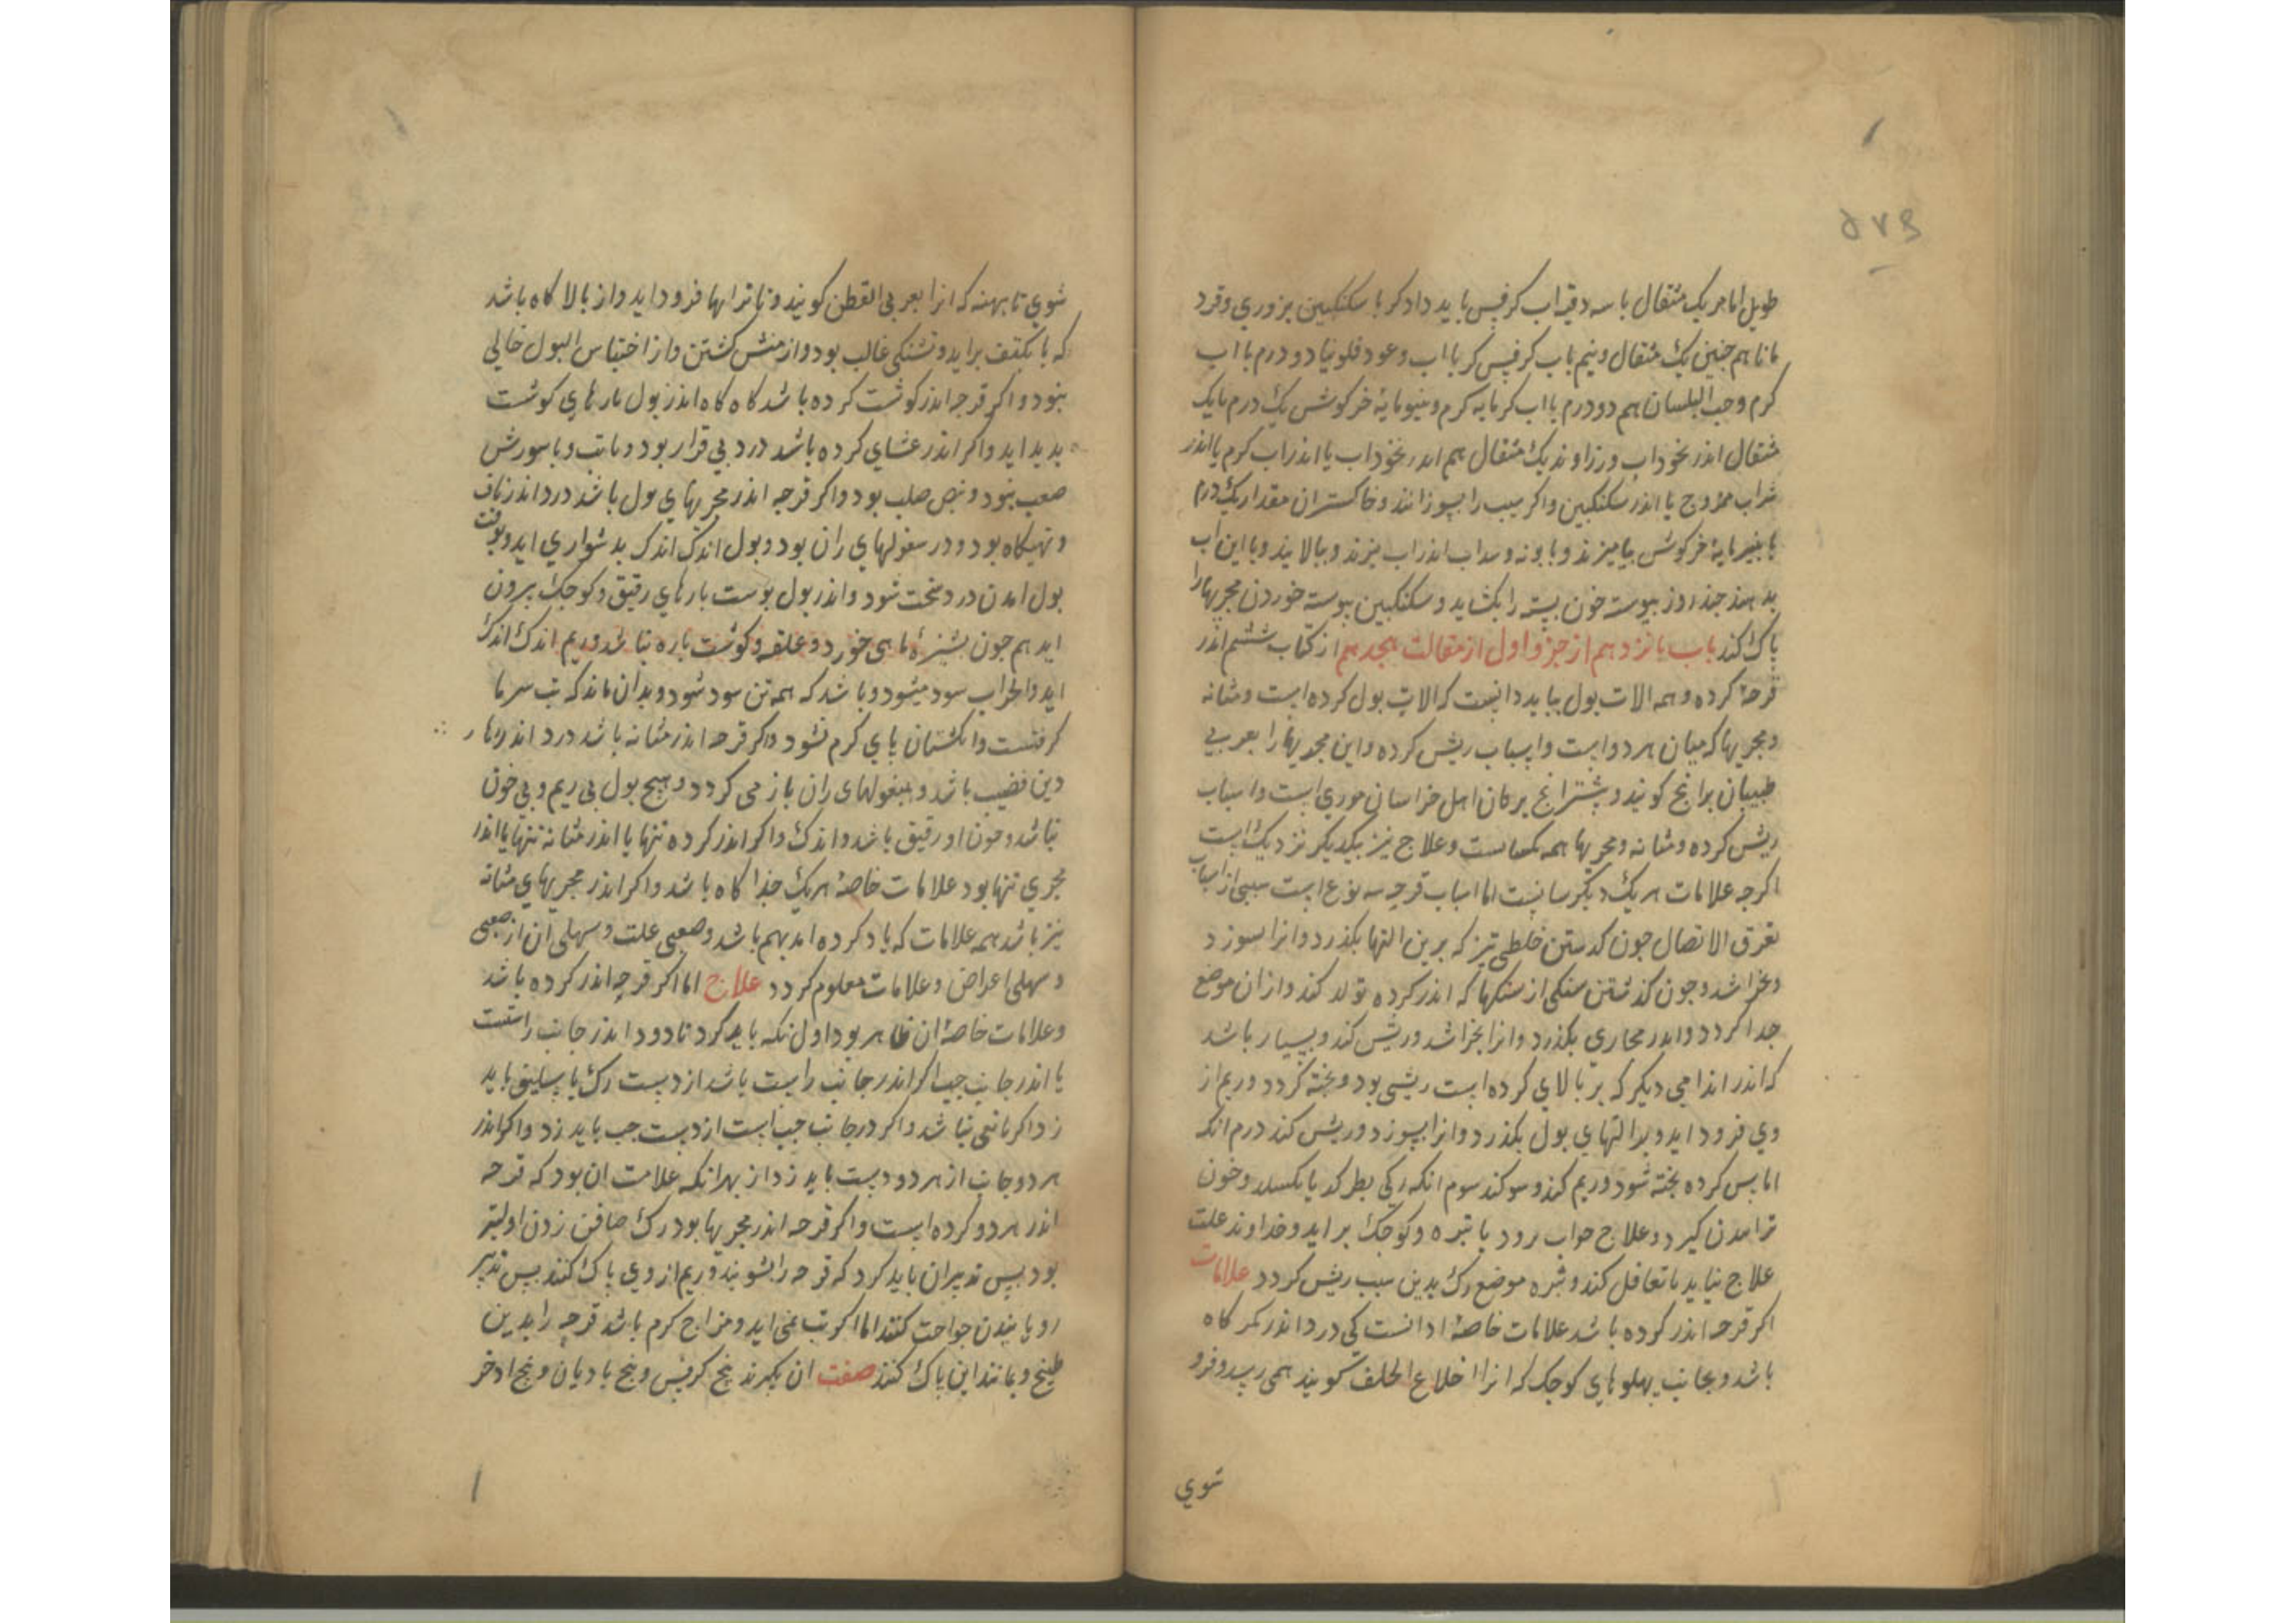 ۵۷۶
طویل اما هر یک مثقال با سه دقیه اب کرفس باید داد کر با سکنکبین بزوری وقرد
مانا هم جنین یک مثقال ونیم باب کرفس کر با اب وعود فلونیا دو درم با اب
کرم وحب البلسان هم دو درم با اب کرمابه کرم وپنیر مایهٔ خرکوش یک درم تا یک
مثقال اندر نخود اب وزراوند یک مثقال هم اندر نخود اب یا اندر اب کرم یا اندر
شراب ممزوج یا اندر سکنکبین واکر سبب را بسوزانند وخاکستر ان مقدار یک درم
با پنیر مایهٔ خرکوش بیامیزند وبابونه وسداب اندر اب بپزند وببالایند وبا این اب
بدهند جند روز بیوسته خون بسته را بکشاید وسکنکبین بیوسته خوردن مجریها را
پاک کند باب بانزدهم از جزو اول از مقالت هجدهم از کتاب ششم اندر
قرحهٔ کرده وهمه الات بول بباید دانست که الات بول کرده است ومثانه
ومجریها که میان هر دو است واسباب ریش کرده واین مجریها را بعربی
طبیبان برابخ کویند وبیشتر ابخ برکان اهل خراسان موری است واسباب
ریش کرده ومثانه ومجریها همه یکسانست وعلاج نیز بیکدیکر نزدیک است
اکرجه علامات هر یک دیکرسانست اما اسباب قرحه سه نوع است سببی از اسباب
تفرق الاتصال جون کذشتن خلطی تیز که برین التها بکذرد وانرا بسوزد
وبخراشد وجون کذشتن سنکی از سنکها که اندر کرده تولد کند واز ان موضع
جدا کردد واندر مجاری بکذرد وانرا بخراشد وریش کند وبسیار باشد
که اندر اندامی دیکر که بر بالای کرده است ریشی بود وبخته کردد وریم از
وی فرود اید وبدالتهای بول بکذرد وانرا بسوزد وریش کند دوم انکه
اماس کرده بخته شود وریم کند وسر کند سوم انکه رکی بطرکد یا بکسلد وخون
ترامدن کیرد وعلاج صواب رود یا تیره وکوجک براید وخداوند علت
علاج نیاید یا تغافل کند وثمره موضع رک بدین سبب ریش کردد علامات
اکر قرحه اندر کرده باشد علامات خاصهٔ او انست کی درد اندر کمرکاه
باشد وبجانب پهلوهای کوجک که انرا اضلاع الخلف کویند همی رسد وفرو
شوی
شوی تا بهنه که انرا بعربی القطن کویند وتا ترانها فرود اید واز بالا کاه باشد
که با بکتف براید وتشنکی غالب بود واز منش کشتن واز احتباس البول خالی
نبود واکر قرحه اندر کوشت کرده باشد کاه کاه اندر بول بارهای کوشت
بدید اید واکر اندر غشای کرده باشد درد بی قرار بود وباتب وباسورش
صعب بود ونبض صلب بود واکر قرحه اندر مجریهای بول باشد درد اندر ناف
وتهیکاه بود ودر بیغولهای ران بود وبول اندک اندک بدشواری اید وبوقت
بول امدن درد سخت شود واندر بول بوست بارهای رقیق وکوجک بیرون
اید هم جون بشیزهٔ ماهی خورد وعلقه وکوشت باره نباشد وریم اندک اندک
اید واطراف سرد میشود وباشد که همه تن سرد شود وبدان ماند که تب سرما
کرفتست وانکشتان پای کرم نشود واکر قرحه اندر مثانه باشد درد اندر زهار
وبن قضیب باشد وبیغولهای ران باز می کردد وهیج بول بی ریم وبی خون
نباشد وخون او رقیق باشد واندک واکر اندر کرده تنها یا اندر مثانه تنها یا اندر
مجری تنها بود علامات خاصهٔ هر یک جدا کاه باشد واکر اندر مجریهای مثانه
نیز باشد همه علامات که یاد کرده امد بهم باشد وصعبی علت وسهلی ان از صعبی
وسهلی اعراض وعلامات معلوم کردد علاج اما اکر قرحه اندر کرده باشد
وعلامات خاصهٔ ان ظاهر بود اول نکه باید کرد تا درد اندر جانب راست است
یا اندر جانب جب اکر اندر جانب راست باشد از دست رک باسلیق باید
زد اکر مانعی نباشد واکر در جانب جب است از دست جب باید زد واکر اندر
هر دو جانب از هر دو دست باید زد از بهر انکه علامت ان بود که قرحه
اندر هر دو کرده است واکر قرحه اندر مجریها بود رک صافن زدن اولیتر
بود بس تدبیر ان باید کرد که قرحه را بشویند وریم از وی پاک کنند بس تدبیر
رویانیدن جراحت کنند اما اکر تب نمی اید ومزاج کرم باشد قرحه را بدین
طبیخ ومانند این پاک کنند صفت ان بکیرند بیخ کرفس وبیخ بادیان وبیخ ادخر